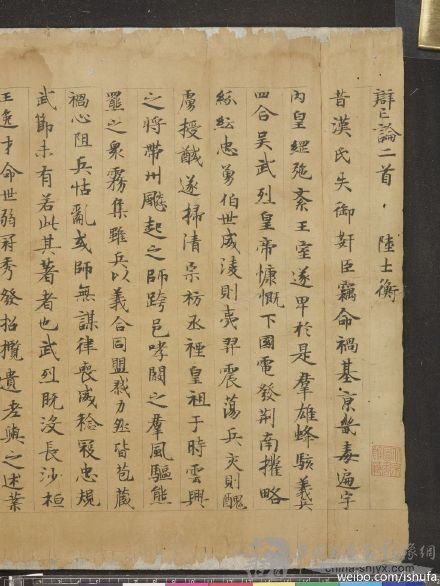 辯亡論二首 陸士衡
昔漢氏失御奸臣竊命禍基京畿毒遍宇
內皇綱弛紊王室遂卑於是羣雄蜂駭義兵
四合吳武烈皇帝慷慨下國電發荊南權略
紛紜忠勇伯世威淩則夷羿震蕩兵交則醜
虜授馘遂掃清宗祊丞禋皇祖于時雲興
之將帶州飈起之師跨邑哮闞之羣風驅熊
羆之衆霧集雖兵以義合同盟戮力然皆苞藏
禍心阻兵怙亂或師無謀律喪威稔寇忠規
武節未有若此其著者也武烈既沒長沙桓
王逸才命世弱冠秀發招攬遺老與之述業
weibo.com/ishufa